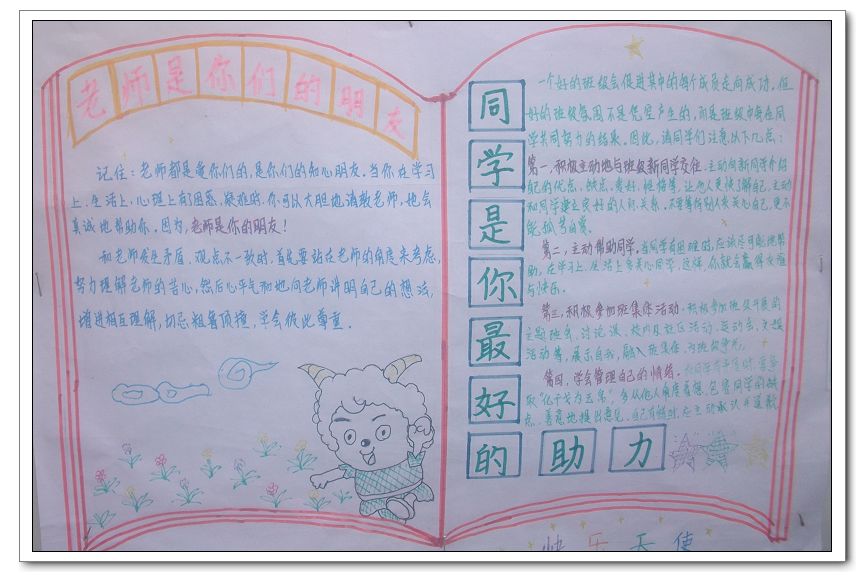 老师是你们的朋友
记住：老师都是爱你们的，是你们的知心朋友。当你在学习
上、生活上、心理上有困惑、疑难时，你可以大胆地请教老师，他会
真诚地帮助你。因为，老师是你的朋友！
和老师发生矛盾、观点不一致时，首先要站在老师的角度来考虑，
努力理解老师的苦心，然后心平气和地向老师讲明自己的想法，
增进相互理解，切忌粗鲁顶撞，学会彼此尊重。
同学是你最好的助力
一个好的班级会促进其中的每个成员走向成功，但
好的班级氛围不是凭空产生的，而是班级中每位同
学共同努力的结果。因此，请同学们注意以下几点：
第一，积极主动地与班级新同学交往。主动向新同学介绍
自己的优点、缺点、爱好、性格等，让他人更快了解自己，主动
和同学建立良好的人际关系。不要等待别人来关心自己，更不
能孤芳自赏。
第二，主动帮助同学。当同学有困难时，应该尽可能地帮
助。在学习上、生活上多关心同学，这样，你就会赢得友谊
与快乐。
第三，积极参加班集体活动。积极参加班级开展的
主题班会、讨论课、校内及社区活动、运动会、文娱
活动等，展示自我，融入班集体，为班级争光。
第四，学会管理自己的情绪。
取“化干戈为玉帛”，多从他人角度着想，包容同学的缺
点，善意地提出意见，自己有错时，应主动承认并道歉
快乐天使